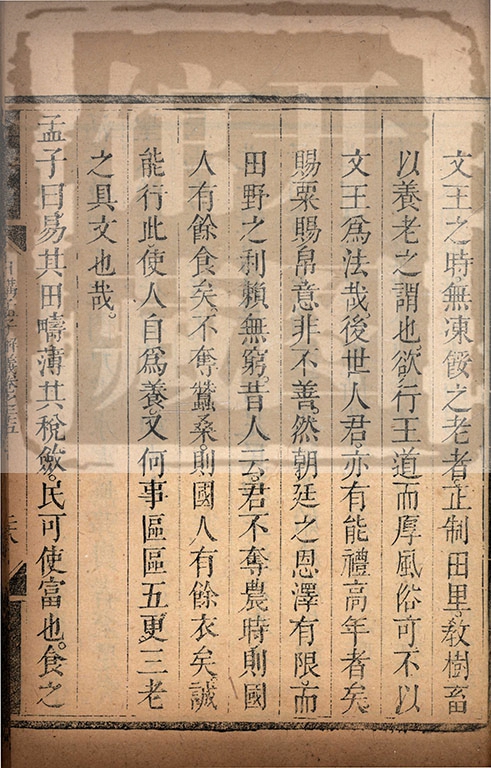 文王之時無凍餒之老者正制田里敎樹畜
以養老之謂也欲行王道而厚風俗可不以
文王爲法哉後世人君亦有能禮高年者矣
賜粟賜帛意非不善然朝廷之恩澤有限而
田野之利賴無窮昔人云君不奪農時則國
人有餘食矣不奪蠶桑則國人有餘衣矣誠
能行此使人自爲養又何事區區五更三老
之具文也哉
孟子曰易其田疇薄其稅斂民可使富也食之
日講四書解義卷之二十五